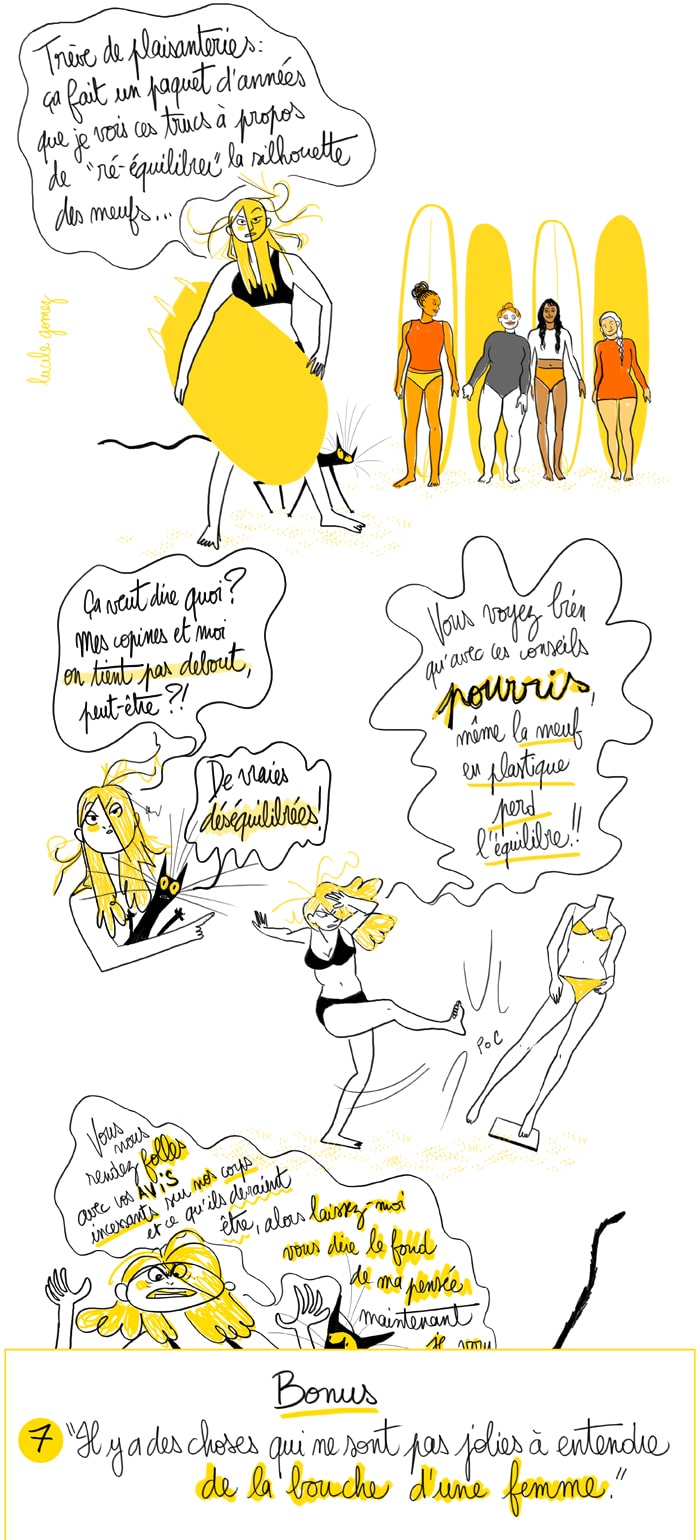 Trève de plaisanteries:
ça fait un paquet d'années
que je vois ces trucs à propos
de "ré-équilibrer" la silhouette
des meufs...
lucile gomez
Ça veut dire quoi?
Mes copines et moi
on tient pas debout,
peut-être?!
De vraies
déséquilibrées!
Vous voyez bien
qu'avec ces conseils
pourris,
même la meuf
en plastique
perd
l'équilibre!!
POC
Vous nous
rendez folles
avec vos AVIS
incessants sur nos corps
et ce qu'ils devraient
être, alors laissez-moi
vous dire le fond
de ma pensée
maintenant
Bonus
7 "Il y a des choses qui ne sont pas jolies à entendre
de la bouche d'une femme."